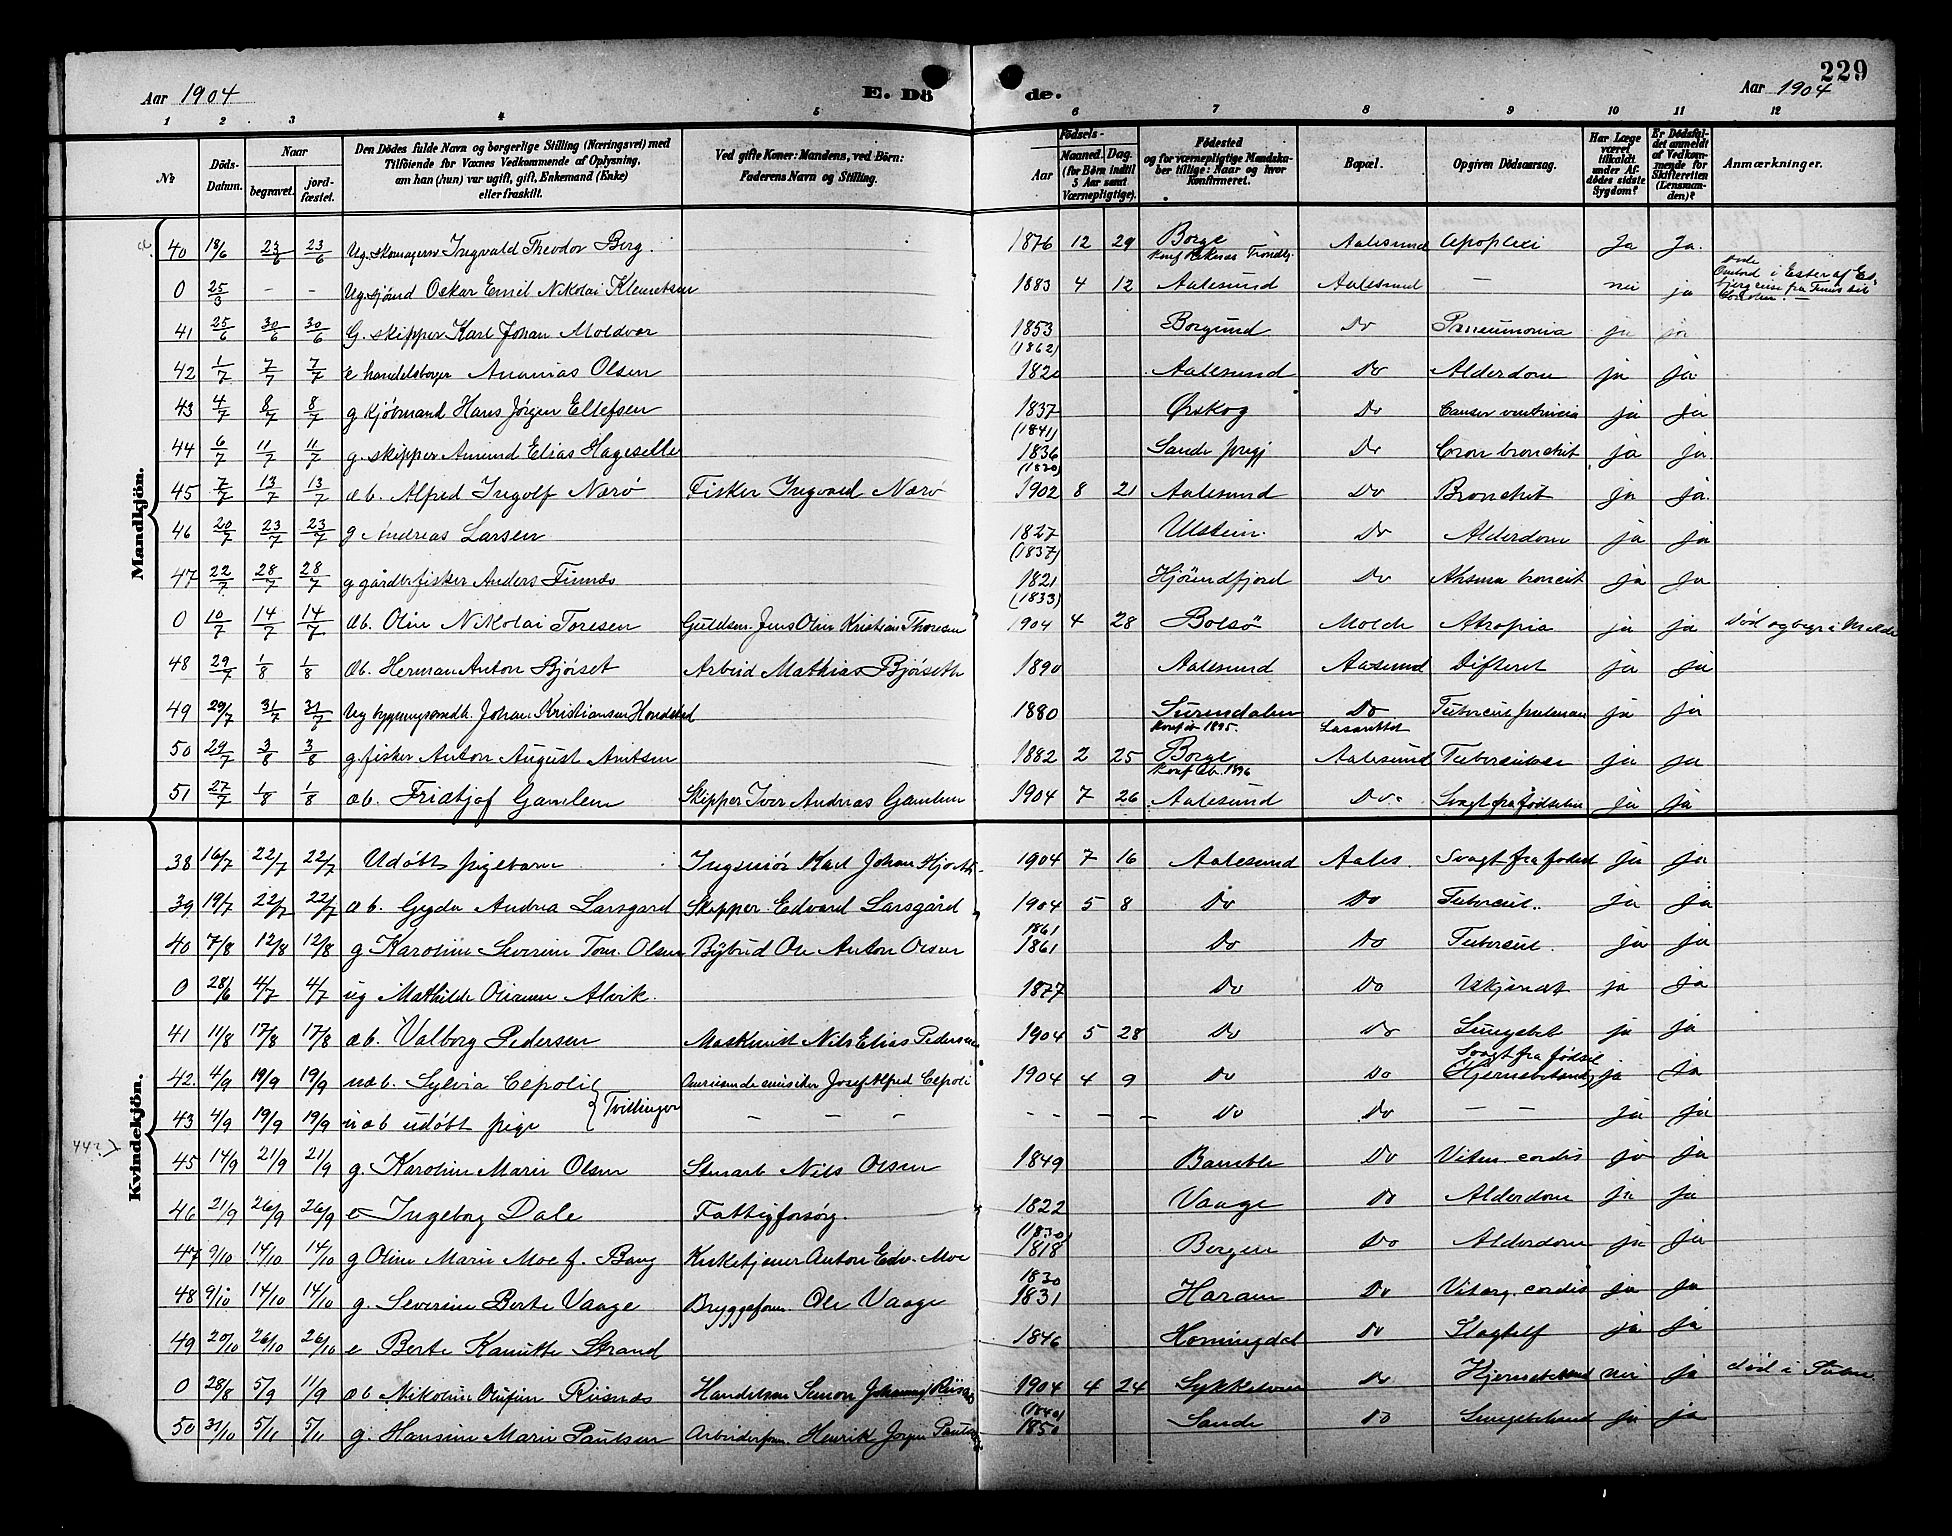 229
Aar 1904 E. Dö de. Aar 1904
1 2 3 4 5 6 7 8 9 10 11 12
№
Döds-Datum.
Naar
begravet.
jordfæstet.
Den Dödes fulde Navn og borgerlige Stilling (Næringsvei) med
Tilföiende for Vœxnes Vedkommende af Oplysning,
om han (hun) var ugift, gift, Enkemand (Enke)
eller fraskilt.
Ved gifte Koner: Mandens, ved Börn:
Faderens Navn og Stilling.
Födsels-
Aar
Maaned. Dag.
(for Börn indtil 5 Aar samt Værnepligtige).
Födested
og for værnepligtige Mandskaber tillige: Naar og hvor Konfirmeret.
Bopæl.
Opgiven Dödsaarsag.
Har Læge været tilkaldt under Afdödes sidste Sygdom?
Er Dödsfaldet anmeldt af Vedkommende for Skifteretten (Lensmanden)?
Anmærkninger.
Mandkjön.
40 18/6 23/6 23/6 Ug. skomagersv Ingvald Theodor Berg. 1876 12 29 Borge Aalesund Apoplexi Ja Ja.
0 25/3 - - Ug. sjömd Oskar Emil Nikolai Klemetsen 1883 4 12 Aalesund Aalesund — nei ja
41 25/6 30/6 30/6 G. skipper Karl Johan Moldvær 1853 (1862) Borgund Do Pneumonia ja ja
42 1/7 7/7 7/7 e handelsborger Ananias Olsen 1820 Aalesund Do Alderdom ja ja.
43 4/7 8/7 8/7 g kjöbmand Hans Jörgen Ellefsen 1837 (1841) Ørskog Do Cancer ja ja
44 6/7 11/7 11/7 g. skipper Amund Elias Hageselle 1836 (1820) Sande prgj Do Cron bronchit ja ja.
45 7/7 13/7 13/7 æb. Alfred Ingolf Nærö Fisker Ingvald Nærö 1902 8 21 Aalesund Do Bronchit ja ja.
46 20/7 23/7 23/7 g Andreas Larsen 1827 (1837) Ulstein. Do Alderdom ja ja
47 22/7 28/7 28/7 g gårdb. fisker Anders Finnes 1821 (1833) Hjörundfjord Do Ahsma broncit ja ja
0 10/7 14/7 14/7 æb. Olin Nikolai Toresen Guldsm. Jens Olin Kristian Thoresen 1904 4 28 Bolsö Molde Atropia ja ja Död og begr i Molde
48 29/7 1/8 1/8 æb. Herman Anton Bjørset Arbeid Mathias Bjørseth 1890 Aalesund Aalesund Difterit ja ja
49 29/7 31/7 31/7 Ug bygningssmdk. Johan Kristiansen 1880 Surendalen konf ib 1895. Do Lasarettet ja ja
50 29/7 3/8 3/8 g. fisker Anton August Arntsen 1882 2 25 Borge konf ib. 1896 Aalesund Tuberculose ja ja
51 27/7 1/8 1/8 æb. Fridtjof Gamlem Skipper Iver Andreas Gamlem 1904 7 26 Aalesund Do. Svagt fra födselen ja ja
Kvindekjön.
38 16/7 22/7 22/7 Udöbt pigebarn Ingeniör Karl Johan Hjorth 1904 7 16 Aalesund Aales. Svagt fra födsel ja ja
39 19/7 22/7 22/7 æb. Gyda Andrea Larsgard Skipper Edvard Larsgård 1904 5 8 Do Do Tubercul. ja ja
40 7/8 12/8 12/8 g Karoline Severine Tom. Olsen Bybud Ole Anton Olsen 1861 1861 Do Do Tubercul. ja ja
0 28/6 4/7 4/7 ug Mathilde Oliane Alvik. 1877 Do Do Ukjendt ja ja
41 11/8 17/8 17/8 æb. Valborg Pedersen Maskinist Nils Elias Pedersen 1904 5 28 Do Do Lungebet ja ja
42. 4/9 19/9 19/9 uæb. Sylvia Cepoli Josef Alfred Cepoli 1904 4 9 Do Do Svagt fra födsel Hjernebetænd ja ja
Tvillinger
43 4/9 19/9 19/9 uæb udöbt pige — — — -- — — Do Do — — ja ja
44?
45 14/9 21/9 21/9 g. Karoline Marie Olsen Stenarb Nils Olsen 1849 Bamble Do Vitm. cordis ja ja
46 21/9 26/9 26/9 e Ingeborg Dale Fattigforsörg. 1822 (1830) Vaage Do Alderdom ja ja
47 9/10 14/10 14/10 g Oline Marie Moe f. Bang Kirketjener Anton Edv. Moe 1818 Bergen Do Alderdom ja ja
48 9/10 14/10 14/10 g. Severine Berte Vaage Bryggeform. Ole Vaage 1830 1831 Haram Do Vitorg. cordis ja ja
49 20/10 26/10 26/10 e Berte Kanutte Strand 1846 Horningdal Do Slagtilf ja ja
0 28/8 5/9 11/9 æb Nikoline Olufine Riisnæs Handelsm Simon Johannes Riisnæs 1904 4 24 Sykkelven Do Hjernebetænd nei ja död i
50 31/10 5/11 5/11 g. Hansine Marie Paulsen Arbeiderform. Henrik Jørgen Paulsen (1840) 1850 Sande Do Lungebetænd ja ja